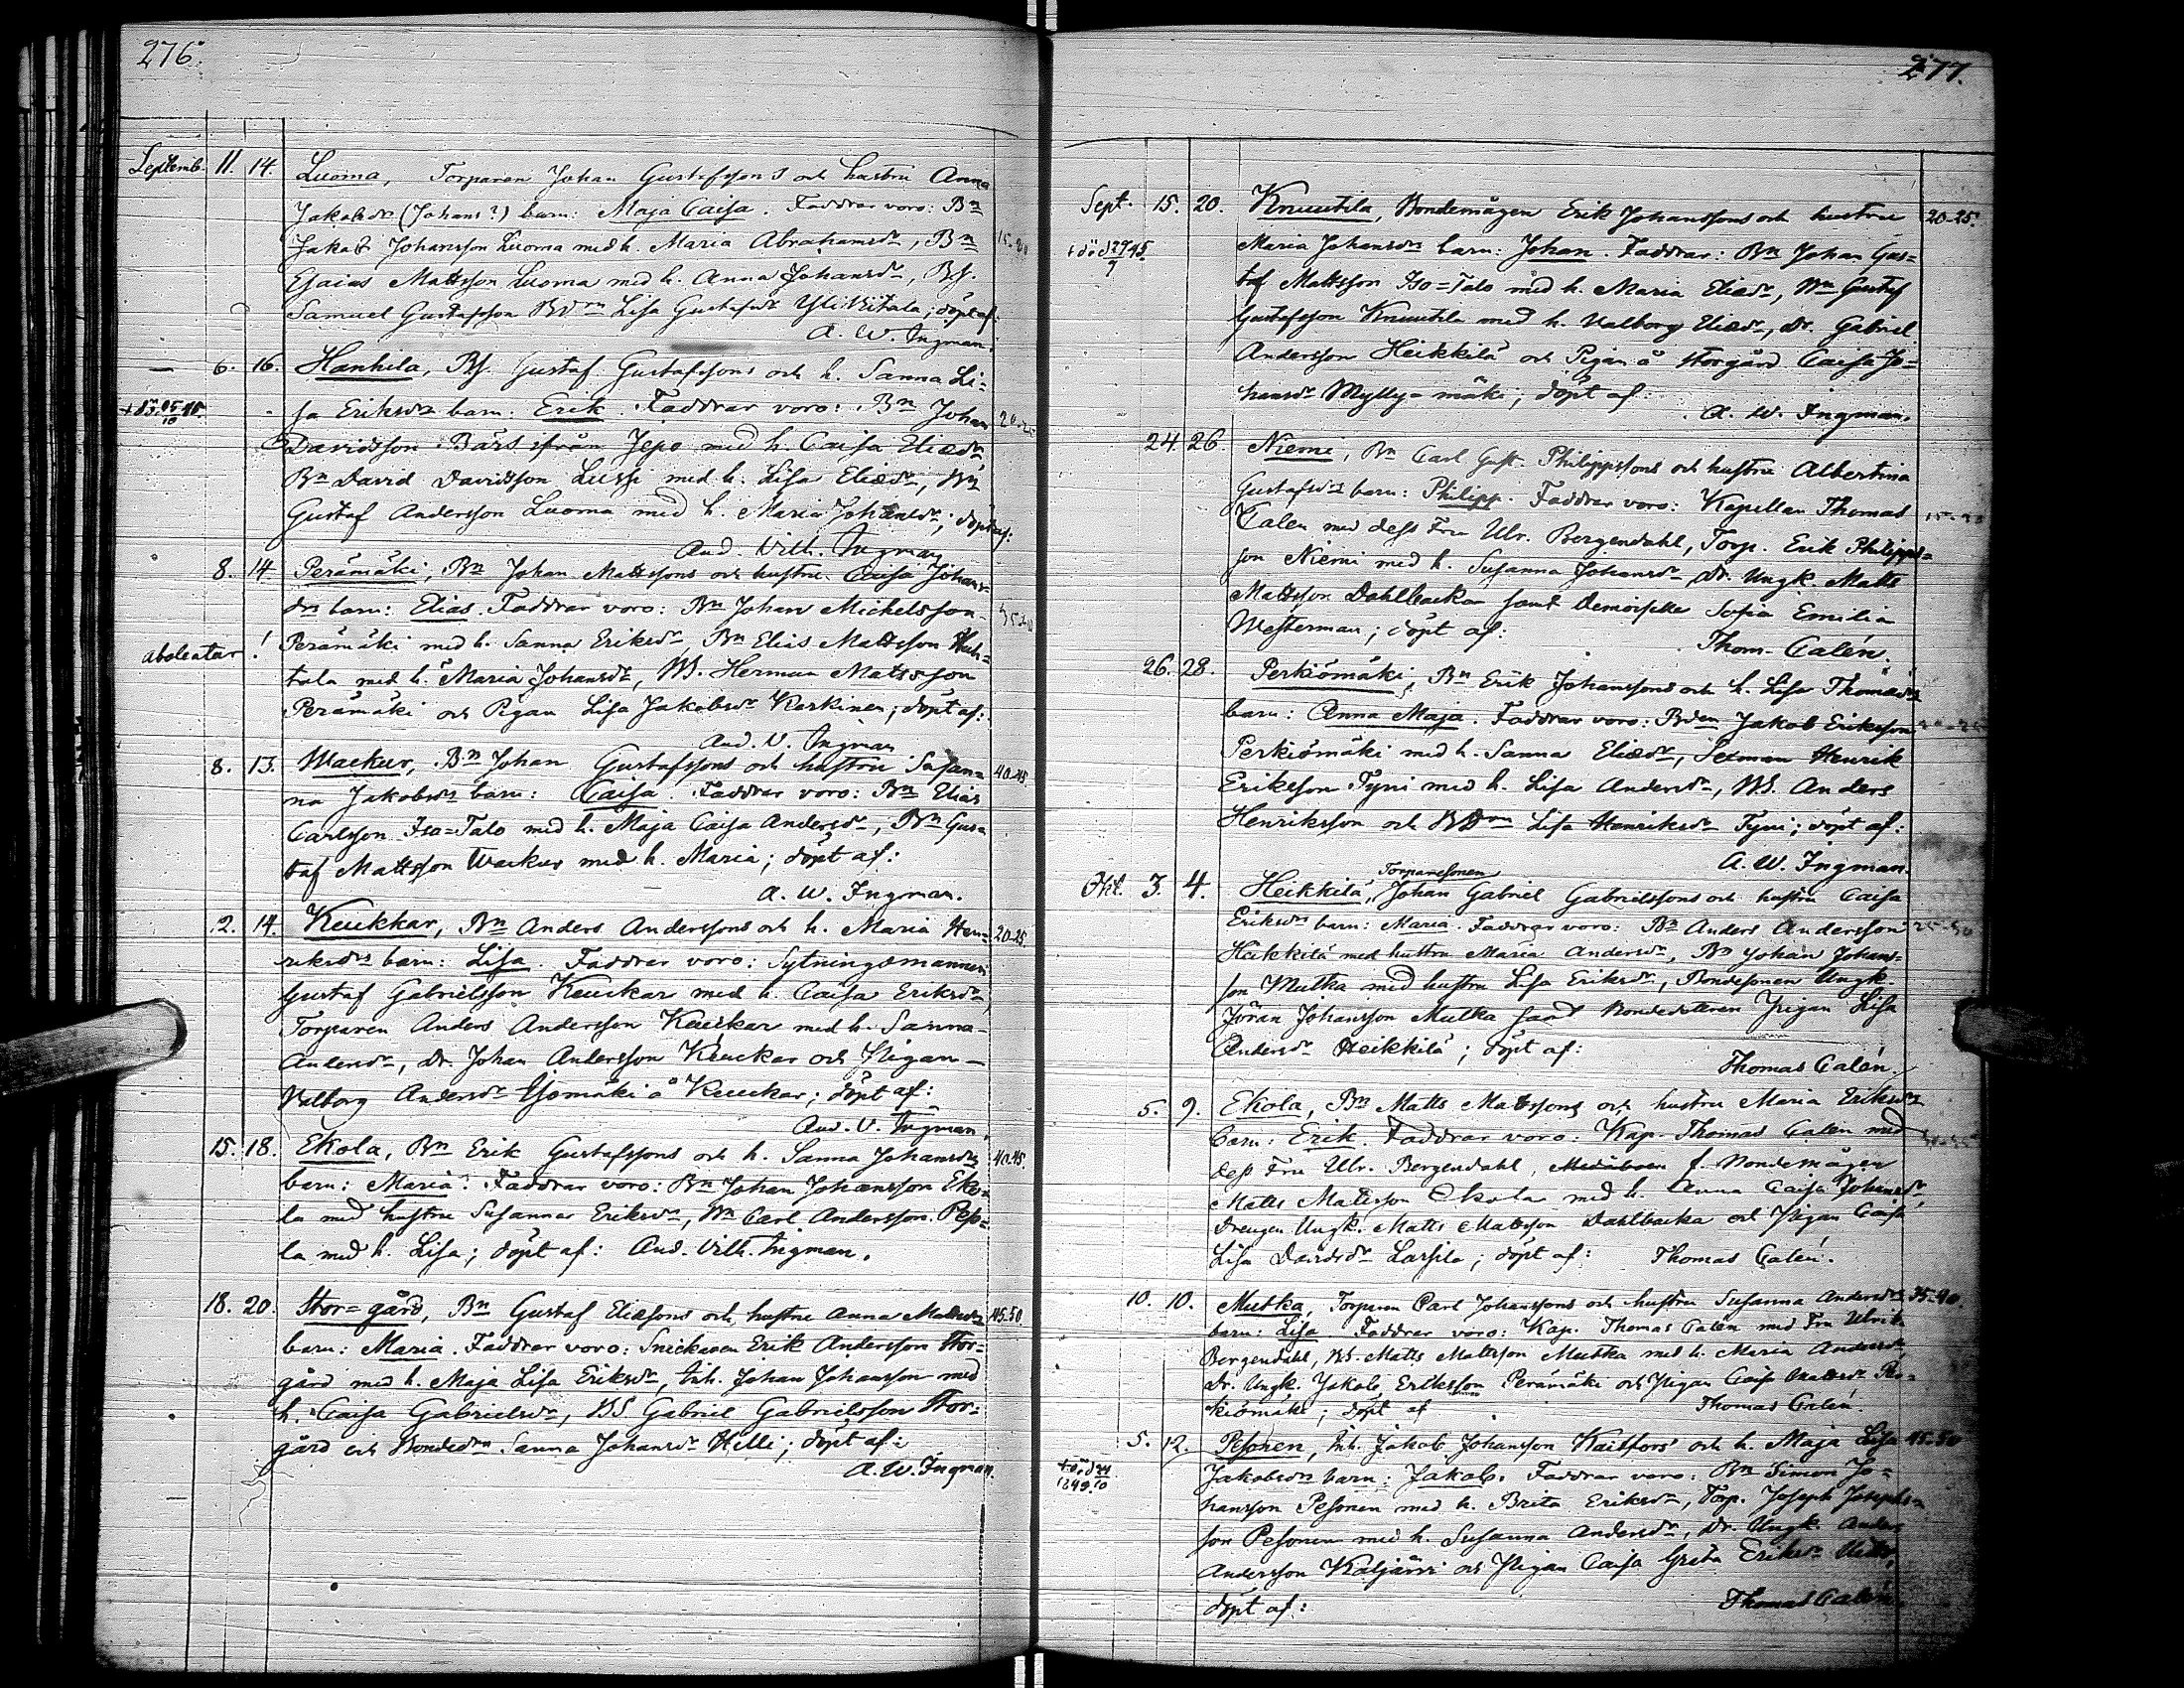 276.
Septemb. 11. 14. Luoma, Torparen Johan Gustafssons och hustru Anna
Jakobsdr (Johans?) barn: Maja Caisa. Faddrar voro: Bn
Jakob Johansson Luoma med h. Maria Abrahamsdr, Bn 15-20
Esaias Mattsson Luoma med h. Anna Johansdr, BS.
Samuel Gustafsson BDrn Lisa Gustafsdr Ylivitala; döpt af:
A. W. Ingman.
— 6. 16. Hanhila, BS. Gustaf Gustafssons och h. Sanna Li-
sa Eriksdrs barn: Erik. Faddrar voro: Bn Johan 20-25
Davidsson Bärs från Jepo med h. Caisa Eliædr
Bn David Davidsson Lussi med h. Lisa Eliædr, Bn
Gustaf Andersson Luoma med h. Maria Johansdr; döpt af:
And. Vilh. Ingman
8. 14. Perämäki, Bn Johan Mattssons och hustru Caisa Johans-
drs barn: Elias. Faddrar voro: Bn Johan Michelsson
Perämäki med h. Sanna Eriksdr, Bn Elias Mattsson Huh-
tala med h. Maria Johansdr, BS. Herman Mattsson
Perämäki och Pigan Lisa Jakobsdr Koskinen; döpt af:
And. V. Ingman
8. 13. Wackur, Bn Johan Gustafssons och hustru Susan- 40-45.
na Jakobsdrs barn: Caisa. Faddrar voro: Bn Elias
Carlsson Iso-Talo med h. Maja Caisa Andersdr, Bn Gus-
taf Mattsson Wackur med h. Maria; döpt af:
A. W. Ingman.
2. 14. Keukkar, Bn Anders Anderssons och h. Maria Hen- 20-25.
riksdrs barn: Lisa. Faddrar voro: Sytningsmannen
Gustaf Gabrielsson Keuckar med h. Caisa Eriksdr,
Torparen Anders Andersson Keuckar med h. Sanna
Andersdr, Dr. Johan Andersson Keuckar och Pigan
Valborg Andersdr å Keuckar; döpt af:
And. V. Ingman.
15. 18. Ekola, Bn Erik Gustafssons och h. Sanna Johansdrs 40-45.
barn: Maria. Faddrar voro: Bn Johan Johansson Eko-
la med hustru Susanna Eriksdr, Bn Carl Andersson Pes-
la med h. Lisa; döpt af: And. Vilh. Ingman.
18. 20. Stor-gård, Bn Gustaf Eliæsons och hustru Anna Mattsdrs 45-50.
barn: Maria. Faddrar voro: Snickaren Erik Andersson Stor-
gård med h. Maja Lisa Eriksdr, Inh. Johan Johansson med
h. Caisa Gabrielsdr, BS Gabriel Gabrielsson Stor-
gård och Bondedrn Sanna Johansdr Hilli; döpt af:
A. W. Ingman.
277.
Sept. 15. 20. Knuutila, Bondemågen Erik Johanssons och hustru 20-25.
Maria Johansdrs barn: Johan. Faddrar: Bn Johan Gus-
taf Mattsson Iso-Talo med h. Maria Eliædr, Bn Gustaf
Gustafsson Knuutila med h. Valborg Eliædr, Dr. Gabriel
Andersson Heikkilä och Pigan å Storgård Caisa Jo-
hansdr Mylly-mäki; döpt af:
A. W. Ingman.
24. 26. Niemi, Bn Carl Gust. Philippssons och hustru Albertina
Gustafsdrs barn: Philipp. Faddrar voro: Kapellan Thomas
Calen med dess Fru Ulr. Bergendahl, Torp. Erik Philipps-
son Niemi med h. Susanna Johansdr, Dr. Ungk. Matts
Mattsson Dahlbacka samt Demoiselle Sofia Emilia
Westerman; döpt af:
Thom. Calén.
26. 28. Perkiömäki, Bn Erik Johanssons och h. Lisa Thomædrs
barn: Anna Maja. Faddrar voro: Bden Jakob Eriksson
Perkiömäki med h. Sanna Eliædr, Sexman Henrik
Eriksson Tyni med h. Lisa Andersdr, BS. Anders
Henriksson och BDrn Lisa Henriksdr Tyni; döpt af:
A. W. Ingman.
Okt. 3. 4. Heikkilä, Torparesonen Johan Gabriel Gabrielssons och hustru Caisa
Eriksdrs barn: Maria. Faddrar voro: Bn Anders Andersson
Heikkilä med hustru Maria Andersdr, Bn Johan Johans-
son Mutka med hustru Lisa Eriksdr, Bondesonen Ungk.
Jöran Johansson Mutka samt Bondedottren Pigan Lisa
Andersdr Heikkilä; döpt af:
Thomas Calén.
5. 9. Ekola, Bn Matts Matssons och hustru Maria Eriksdrs
barn: Erik. Faddrar voro: Kap. Thomas Calen med
dess Fru Ulr. Bergendahl, f. Bondemågen
Matts Matsson Ekola med h. Anna Caisa Johansdr,
Drengen Ungk. Matts Matsson Dahlbacka och Pigan Caisa
Lisa Davidsdr Lassila; döpt af: Thomas Calén.
10. 10. Mutka, Torparen Carl Johanssons och hustru Susanna Andersdrs 35-40.
barn: Lisa. Faddrar voro: Kap. Thomas Calén med Fru Ulrik.
Bergendahl, BS. Matts Mattsson Mutka med h. Maria Andersdr,
Dr. Ungk. Jakob Eriksson Perämäki och Pigan Caisa Mattsdr Per-
kiömäki; döpt af
Thomas Calén.
5. 12. Pesonen, Inh. Jakob Johansson Kaitfors och h. Maja Lisa 45-50
Jakobsdrs barn: Jakob. Faddrar voro: Bn Simon Jo-
hansson Pesonen med h. Brita Eriksdr, Torp. Joseph Josephs-
son Pesonen med h. Susanna Andersdr, Dr. Ungk. Anders
Andersson Kaljärvi och Pigan Caisa Greta Eriksdr
döpt af:
Thomas Calén.